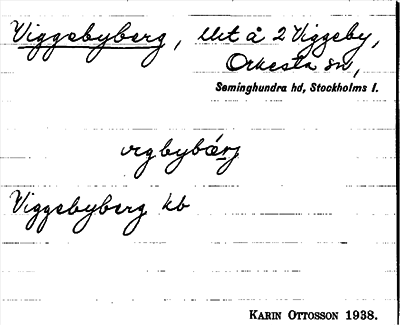 Viggebyberg, utt å 2 Viggeby,
Orkesta sn,
Seminghundra hd, Stockholms l.
vıgbybærj
Viggebyberg kb
KARIN OTTOSSON 1938.